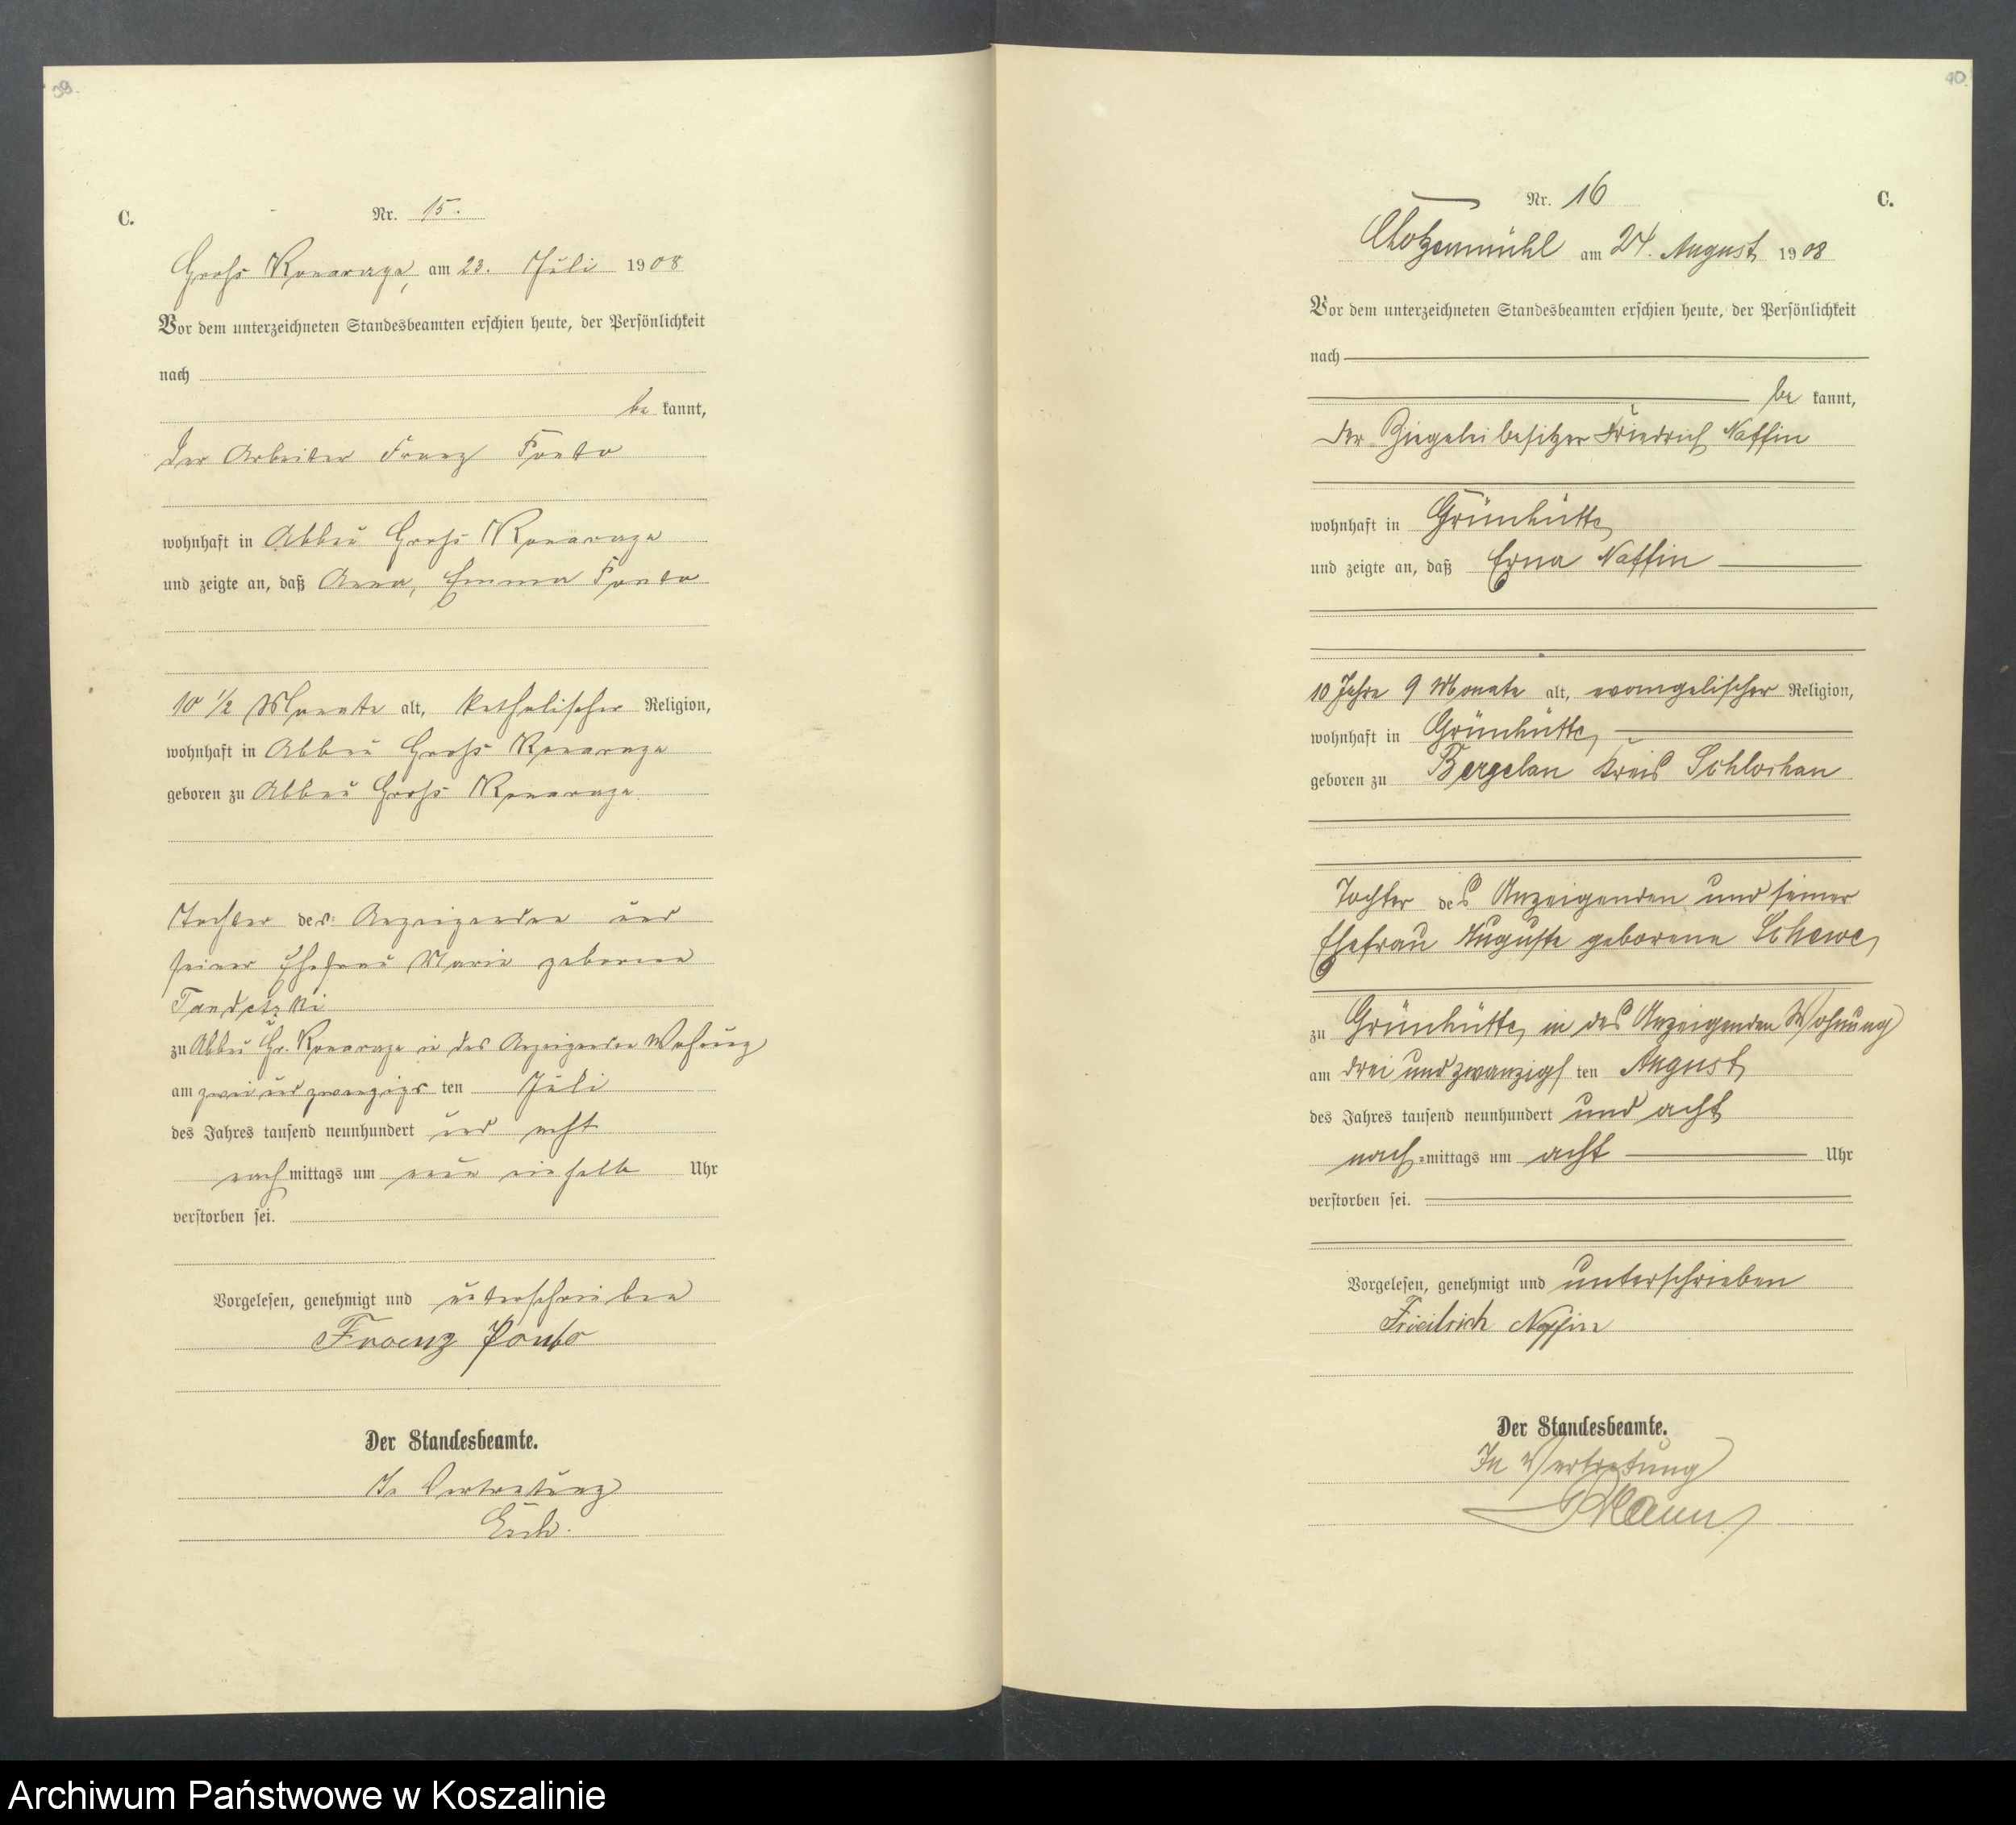 39.
C.
Nr. 15.
Gross Konarzyn, am 23. Juli 1908
Vor dem unterzeichneten Standesbeamten erschien heute, der Persönlichkeit
nach
be kannt,
der Arbeiter Franz
wohnhaft in Abbau Gross
und zeigte an, daß Anna, Emma
10 1/2 Monate alt, katholischer Religion,
wohnhaft in Abbau Gross
geboren zu Abbau Gross
Tochter des Anzeigenden und
seiner Ehefrau Marie geborene
Tandetzki
zu Abbau Gr. in des Anzeigenden Wohnung
am zwei und zwanzigs ten Juli
des Jahres tausend neunhundert und acht
nach mittags um neun einhalb Uhr
verstorben sei.
Vorgelesen, genehmigt und unterschrieben
Franz
Der Standesbeamte.
In Vertretung
40.
Nr. 16
C.
Chotzenmühl am 24. August 1908
Vor dem unterzeichneten Standesbeamten erschien heute, der Persönlichkeit
nach
be kannt,
der Ziegeleibesitzer Friedrich Naffin
wohnhaft in Grünhütte
und zeigte an, daß Erna Naffin
10 Jahre 9 Monate alt, evangelischer Religion,
wohnhaft in Grünhütte,
geboren zu Bergelau Kreis Schlochau
Tochter des Anzeigenden und seiner
Ehefrau Auguste geborene Schewe,
zu Grünhütte, in des Anzeigenden Wohnung
am drei und zwanzigs ten August
des Jahres tausend neunhundert und acht
nach=mittags um acht Uhr
verstorben sei.
Vorgelesen, genehmigt und unterschrieben
Friedrich Naffin
Der Standesbeamte.
In Vertretung
Archiwum Państwowe w Koszalinie